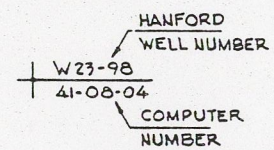 HANFORD
WELL NUMBER
W23-98
41-08-04
COMPUTER
NUMBER